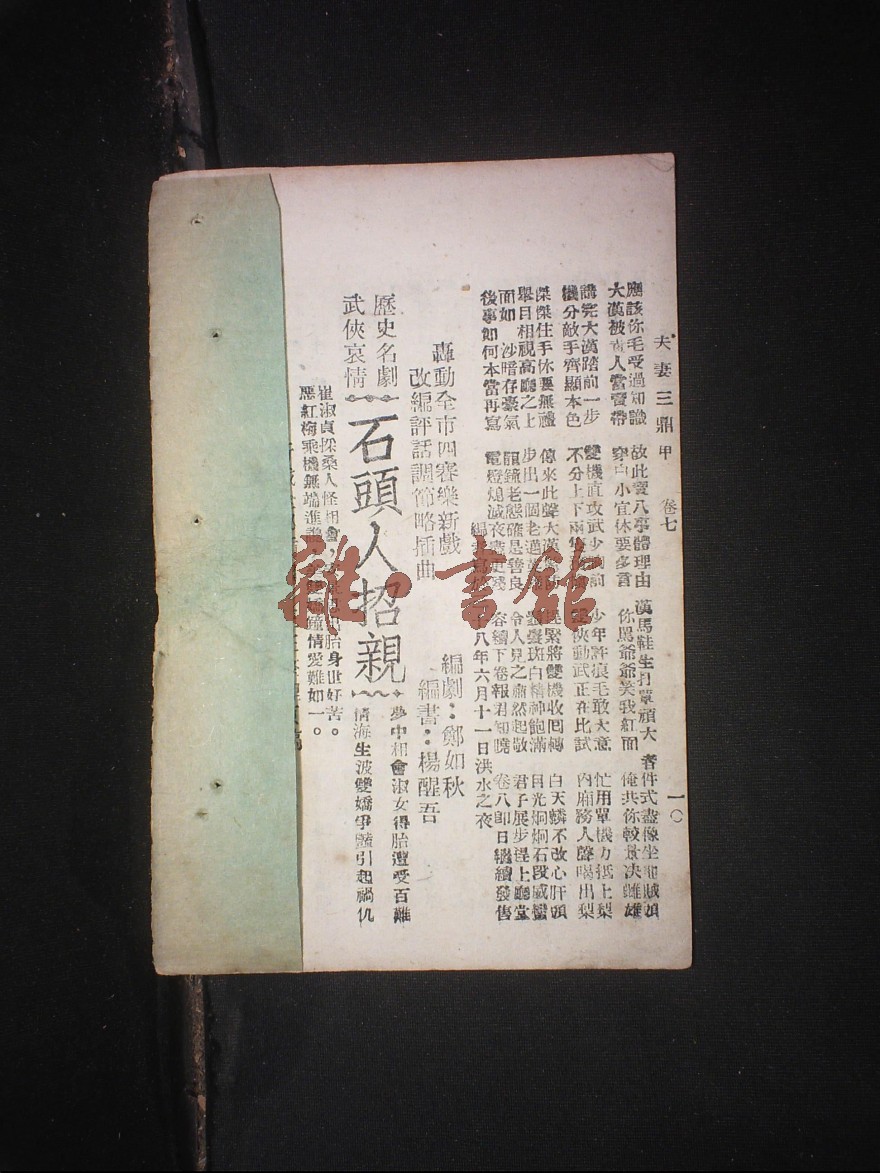 夫妻三鼎甲 卷七 一〇
應該你毛受過知識 故此賣八事體理由 漢馬鞋生打單頑大 者件式盡像坐
大漢被人當賣帶 穿白小宜休要多言 你罵爺爺笑我紅面 俺共你較量决雌雄
講完大漢踏前一步 雙機直攻武少 少年許痕毛敢大意 忙用單機力抵上梨
機分敵手齊顯本色 不分上下兩 俠動武正在比試 內廂務人聲喝出梨
傑傑住手休要無禮 億來此聲大漢 緊將雙機收囘轉 白天麟不改心肝頭
舉目相視高廳之上 步出一個老邁 斑白精神飽滿 目光炯炯石段威
面如 沙暗存豪氣 龍鐘老態確是善良 令人見之肅然起敬 君子展步逞上廳堂
後事如何本當再寫 電燈熄滅夜 殘 容續下卷報君知曉 卷八即日繼續發售
八年六月十一日洪水之夜
轟動全市四賽樂新戲 編劇：鄭如秋
改編評話調節略插曲 編書：楊醒吾
歷史名劇
武俠哀情
石頭人招親
夢中相會淑女得胎遭受百難
情海生波雙嬌爭豔引起禍仇
崔淑貞採桑人怪相會 胎身世好苦。
惡紅梅乘機無端進讒 鍾情愛難如一。